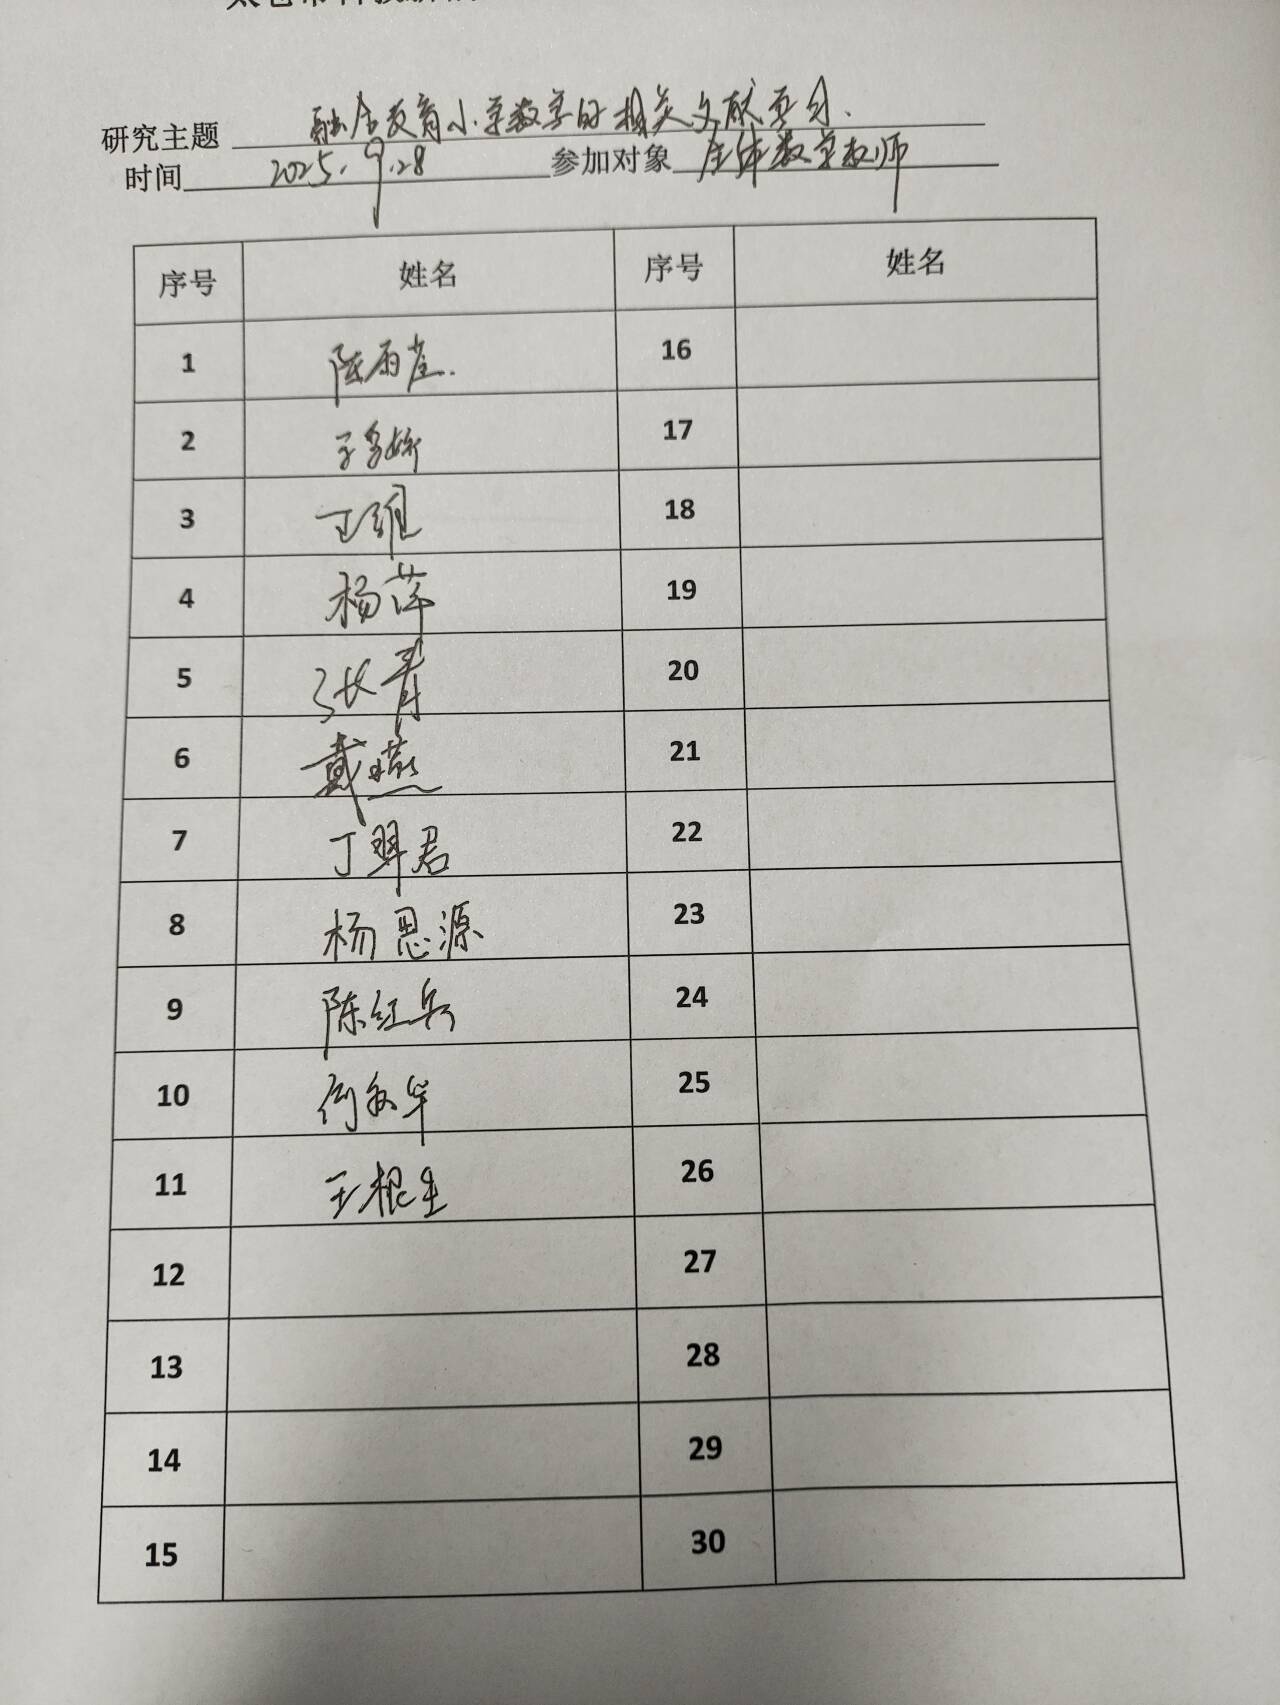 研究主题 融合教育小学数学的相关文献学习.
时间 2025.9.28 参加对象 全体数学教师
序号 姓名 序号 姓名
1 陈雨 16
2 17
3 丁维 18
4 杨萍 19
5 张青 20
6 戴燕 21
7 丁翠君 22
8 杨恩源 23
9 陈红兵 24
10 何秋华 25
11 王根生 26
12 27
13 28
14 29
15 30